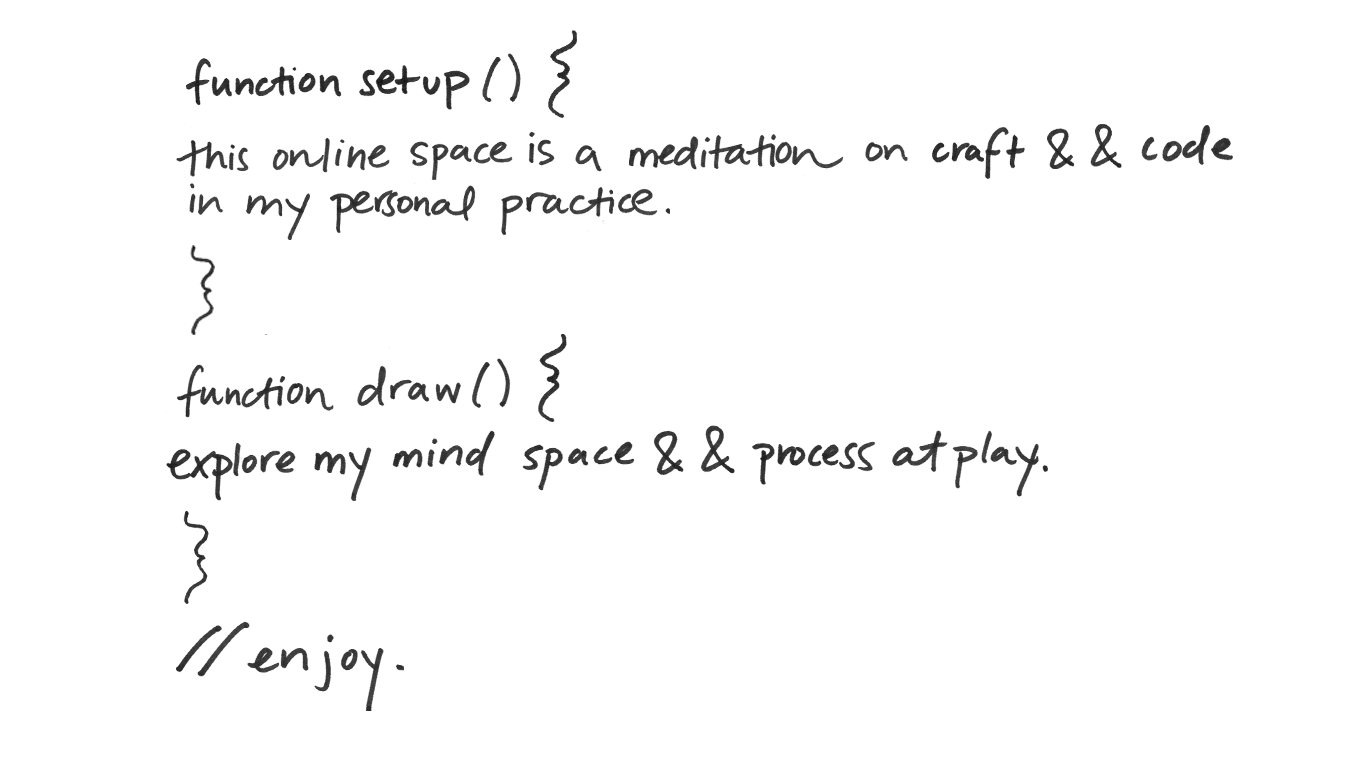 function setup() {
this online space is a meditation on craft & & code
in my personal practice.
}
function draw() {
explore my mind space & & process at play.
}
// enjoy.